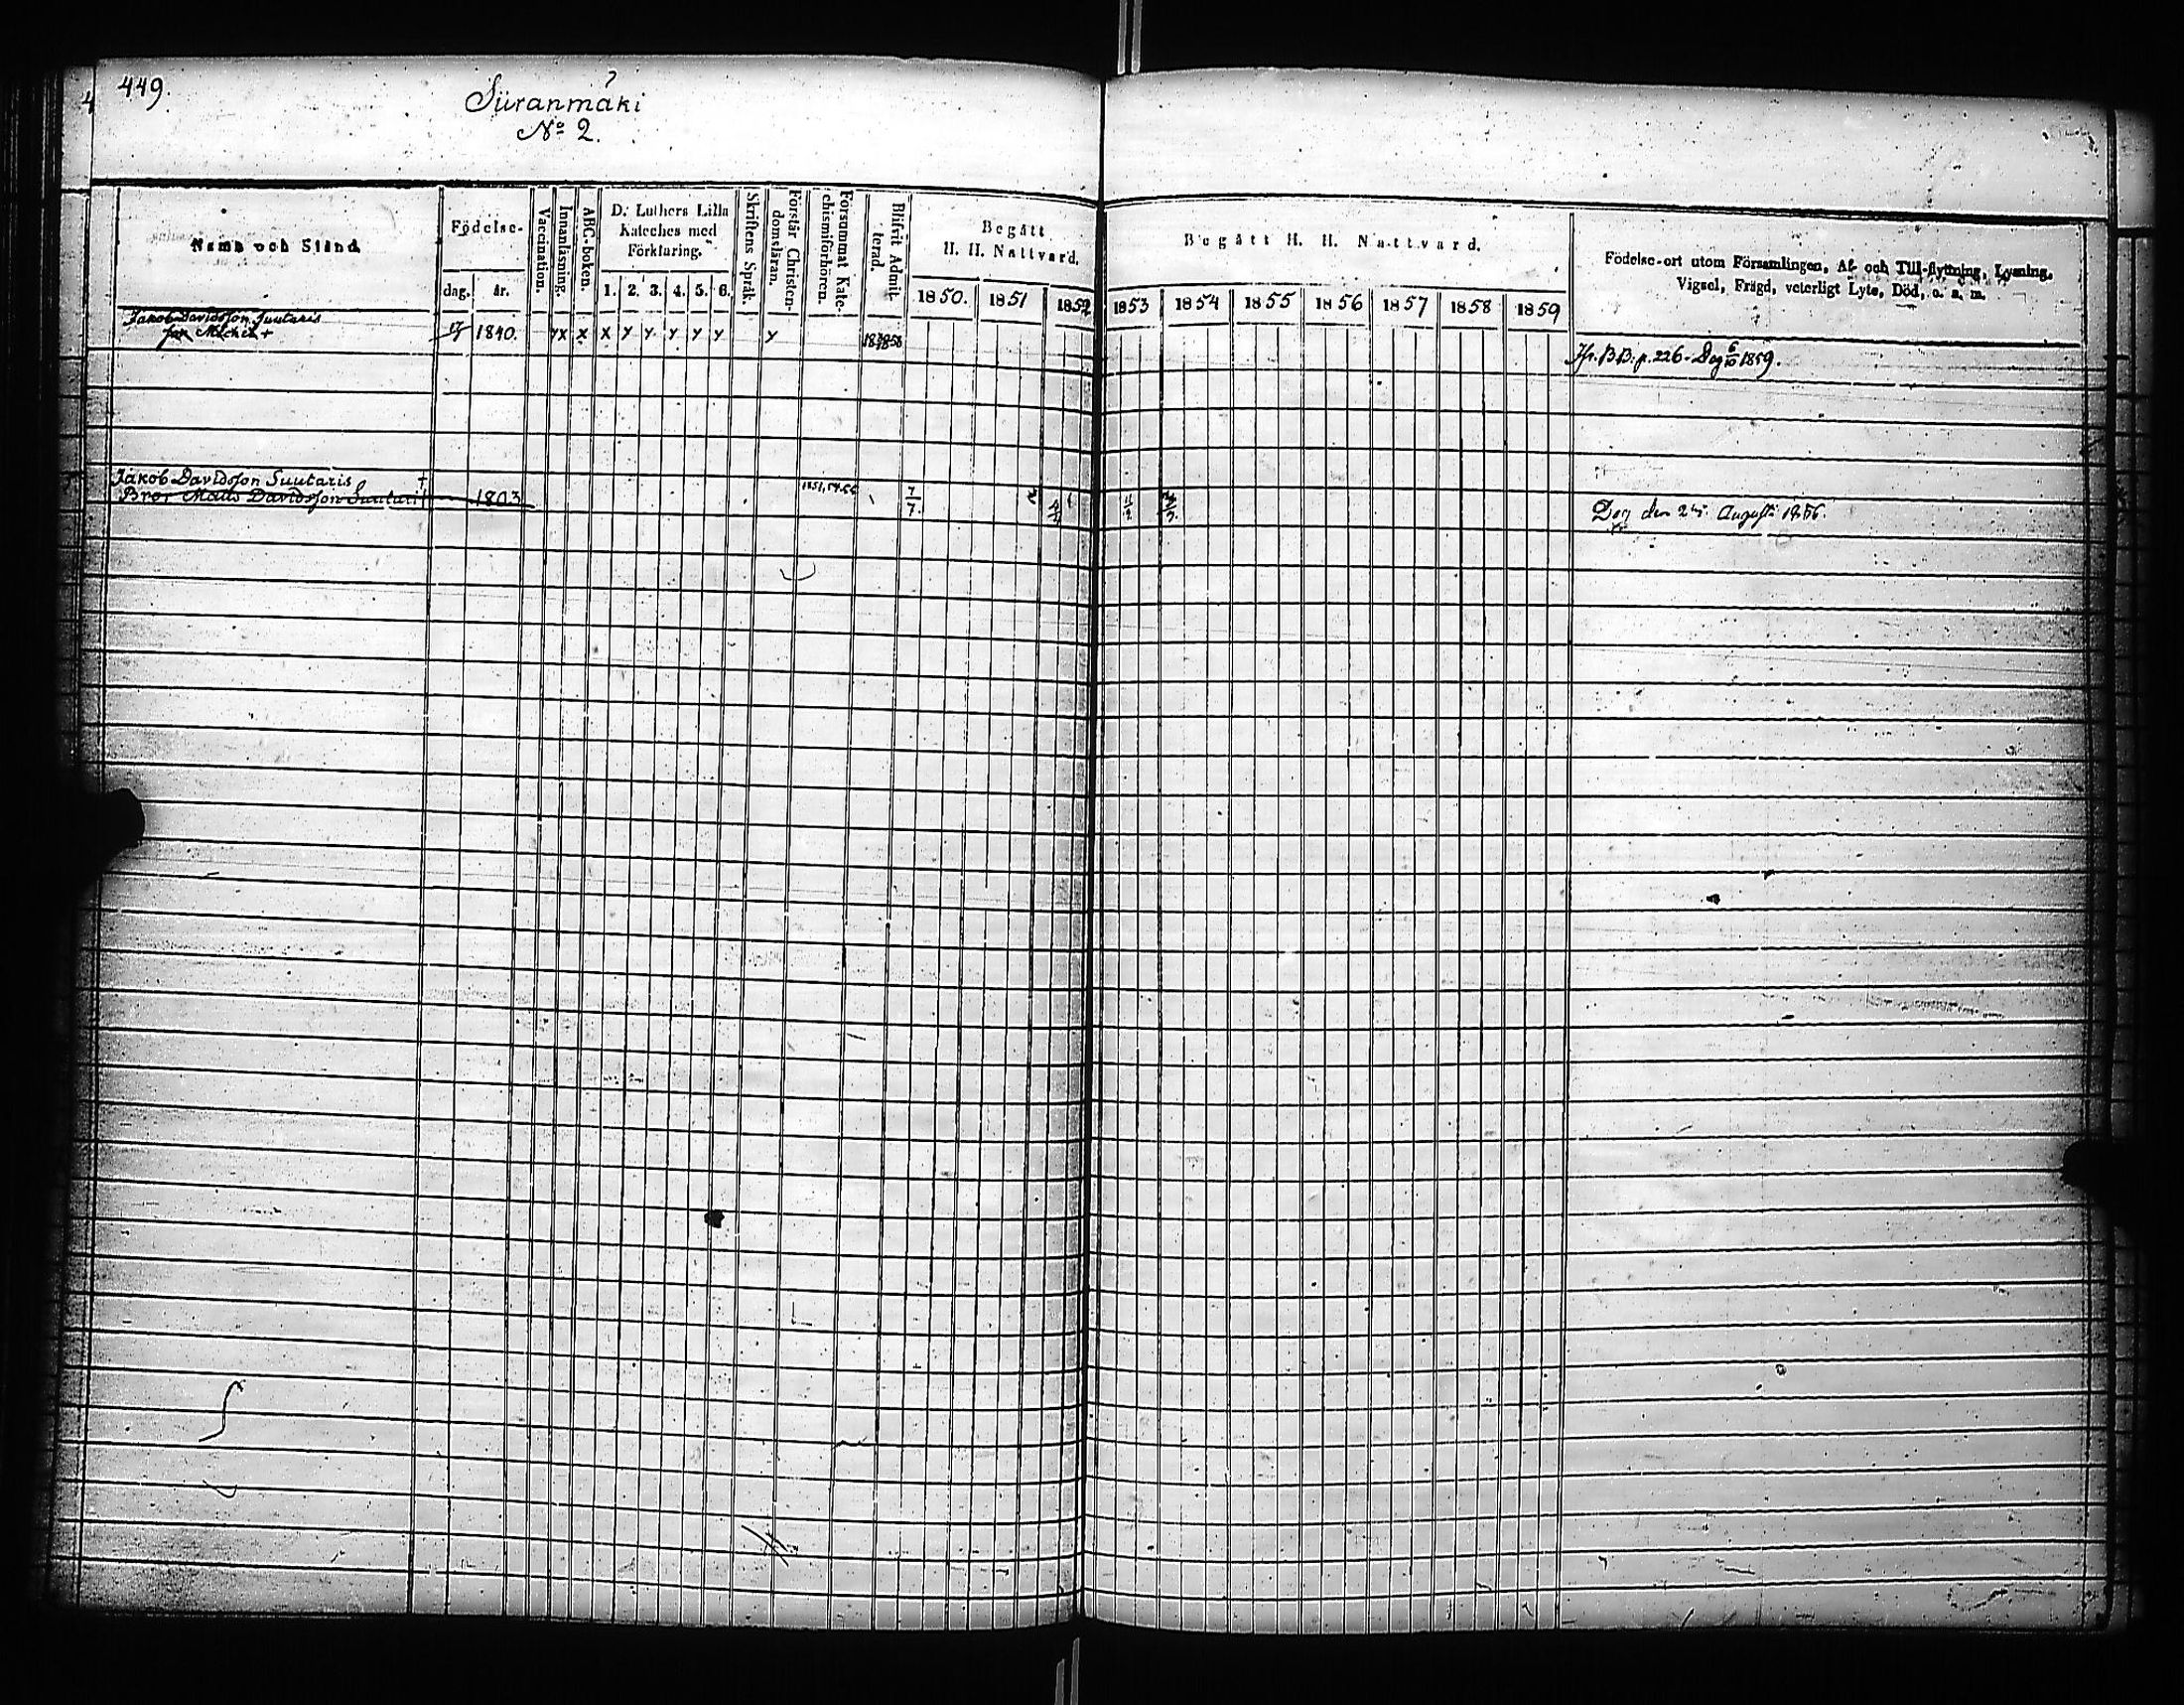 449.
Siiranmäki
No 2.
Namn och Stånd.
Födelse-
dag.
år.
Vaccination.
Innanläsning.
ABC-boken.
D:r Luthers Lilla
Kateches med
Förklaring.
1. 2. 3. 4. 5. 6.
Skriftens Språk.
Förstår Christen-
domsläran.
Försummat Kate-
chismiförhören.
Blifvit Admit-
terad.
Begått
H. H. Nattvard.
1850. 1851 1852
Begått H. H. Nattvard.
1853 1854 1855 1856 1857 1858 1859
Födelse-ort utom Församlingen, Af- och Till-flyttning, Lysning,
Vigsel, Frägd, veterligt Lyte, Död, o. s. m.
Jakob Davidsson Suutaris
son Michel + 1840. yx x x y y y y y y
Jfr. BB: p. 226. Dog 6/10 1859.
Jakob Davidsson Suutaris +
Bror Matts Davidsson Suutari + 1803 7/7.
Dog den August 1856.